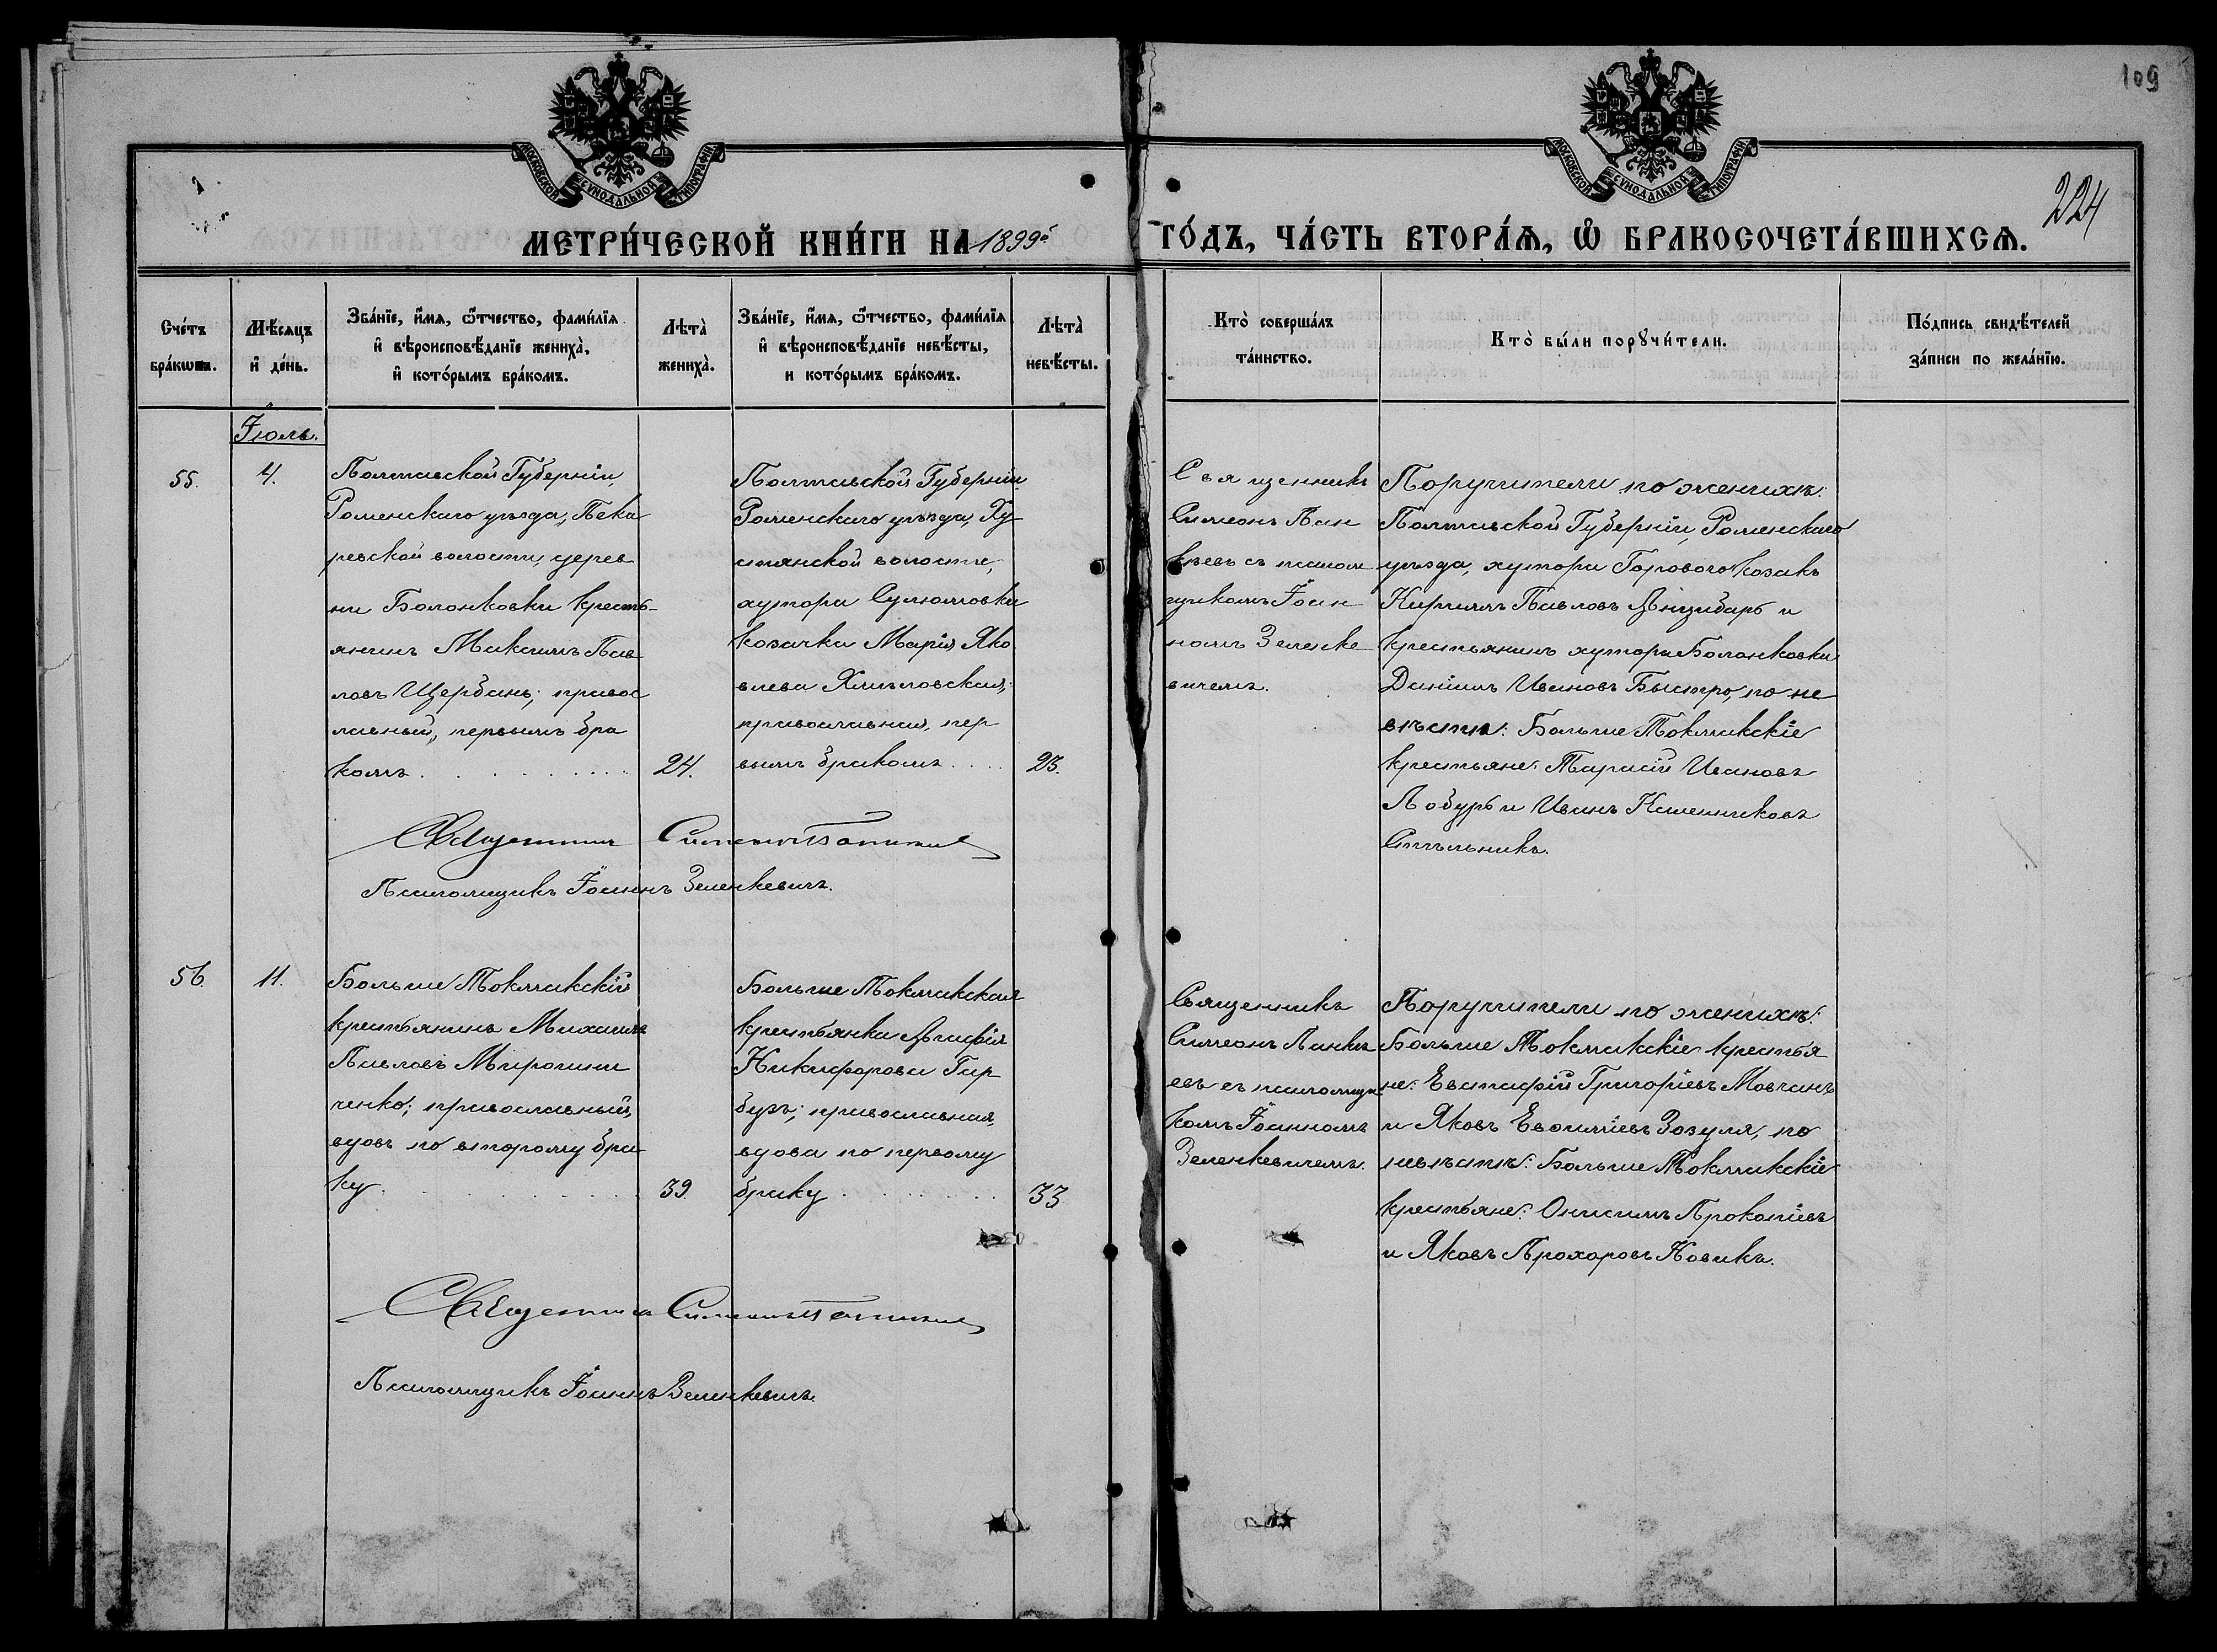 109
224
МОСКОВСКОЙ СѴНОДАЛЬНОЙ ТИПОГРАФІИ
МОСКОВСКОЙ СѴНОДАЛЬНОЙ ТИПОГРАФІИ
МЕТРИ́ЧЕСКОЙ КНИ́ГИ НА 1899й ГО́ДЪ, ЧА́СТЬ ВТОРА́Ѧ, Ѽ БРАКОСОЧЕТА́ВШИХСѦ.
Сче́тъ
бра́кωвъ.
Мѣ́сяцъ
и҆ де́нь.
Зва́нїе, и҆́мѧ, ѻ҆́тчество, фами́лїѧ
и҆ вѣроисповѣ́данїе жениха̀,
и҆ кото́рымъ бра́комъ.
Лѣта̀
жениха̀.
Зва́нїе, и҆́мѧ, ѻ҆́тчество, фами́лїѧ
и҆ вѣроисповѣ́данїе невѣ́сты,
и кото́рымъ бра́комъ.
Лѣта̀
невѣ́сты.
Кто̀ соверша́лъ
та́инство.
Кто̀ бы́ли порꙋчи́тели.
По́дпись свидѣ́телей
за́писи по жела́нїю.
Іюль.
55.
4.
Полтавской Губерніи
Роменскаго уѣзда, Пека
ревской волости, дерев
ни Болонковки кресть-
янинъ Максимъ Пав
ловъ Щербань; правос
лавный, первымъ бра
комъ . . . . . . . . .
24.
Полтавской Губерніи
Роменскаго уѣзда, Ху
стянской волости,
хутора
козачка Марія Яко
влева Хмѣловская;
православная, пер
вымъ бракомъ . . . .
23.
Священникъ
Симеонъ Пан
кѣевъ съ псалом
щикомъ Іоан
номъ Зеленке
вичемъ.
Поручители по женихѣ:
Полтавской Губерніи, Роменскаго
уѣзда, хутора Горового козакъ
Кириллъ Павловъ и
крестьянинъ хутора Болонковки
Даніилъ Ивановъ Быстро, по не
вѣстѣ: Больше Токмакскіе
крестьяне: Тарасій Ивановъ
Лобуръ и Иванъ
Стѣльникъ.
Священникъ Симеонъ Панкѣевъ
Псаломщикъ Іоаннъ Зеленкевичъ.
56.
11.
Больше Токмакскій
крестьянинъ Михаилъ
Павловъ Мирошни
ченко; православный,
вдовъ по второму бра-
ку . . . . . . . . . .
39.
Больше Токмакская
крестьянка Агафія
Никифорова Гар
бузъ; православная,
вдова по первому
браку . . . . . . . .
33
Священникъ
Симеонъ Панкѣ
евъ съ псаломщи
комъ Іоанномъ
Зеленкевичемъ.
Поручители по женихѣ:
Больше Токмакскіе крестья
не: Евстафій Григоріевъ Мовчанъ
и Яковъ Евѳиміевъ Зозуля, по
невѣстѣ: Больше Токмакскіе
крестьяне: Онисимъ Прокопіевъ
и Яковъ Прохоровъ Новикъ.
Священникъ Симеонъ Панкѣевъ
Псаломщикъ Іоаннъ Зеленкевичъ.